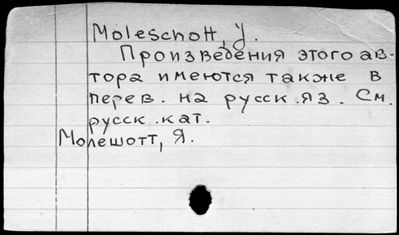 Moleschott, J.
Произведения этого ав-
тора имеются также в
перев. на русск. яз. См.
русск. кат.
Молешотт, Я.